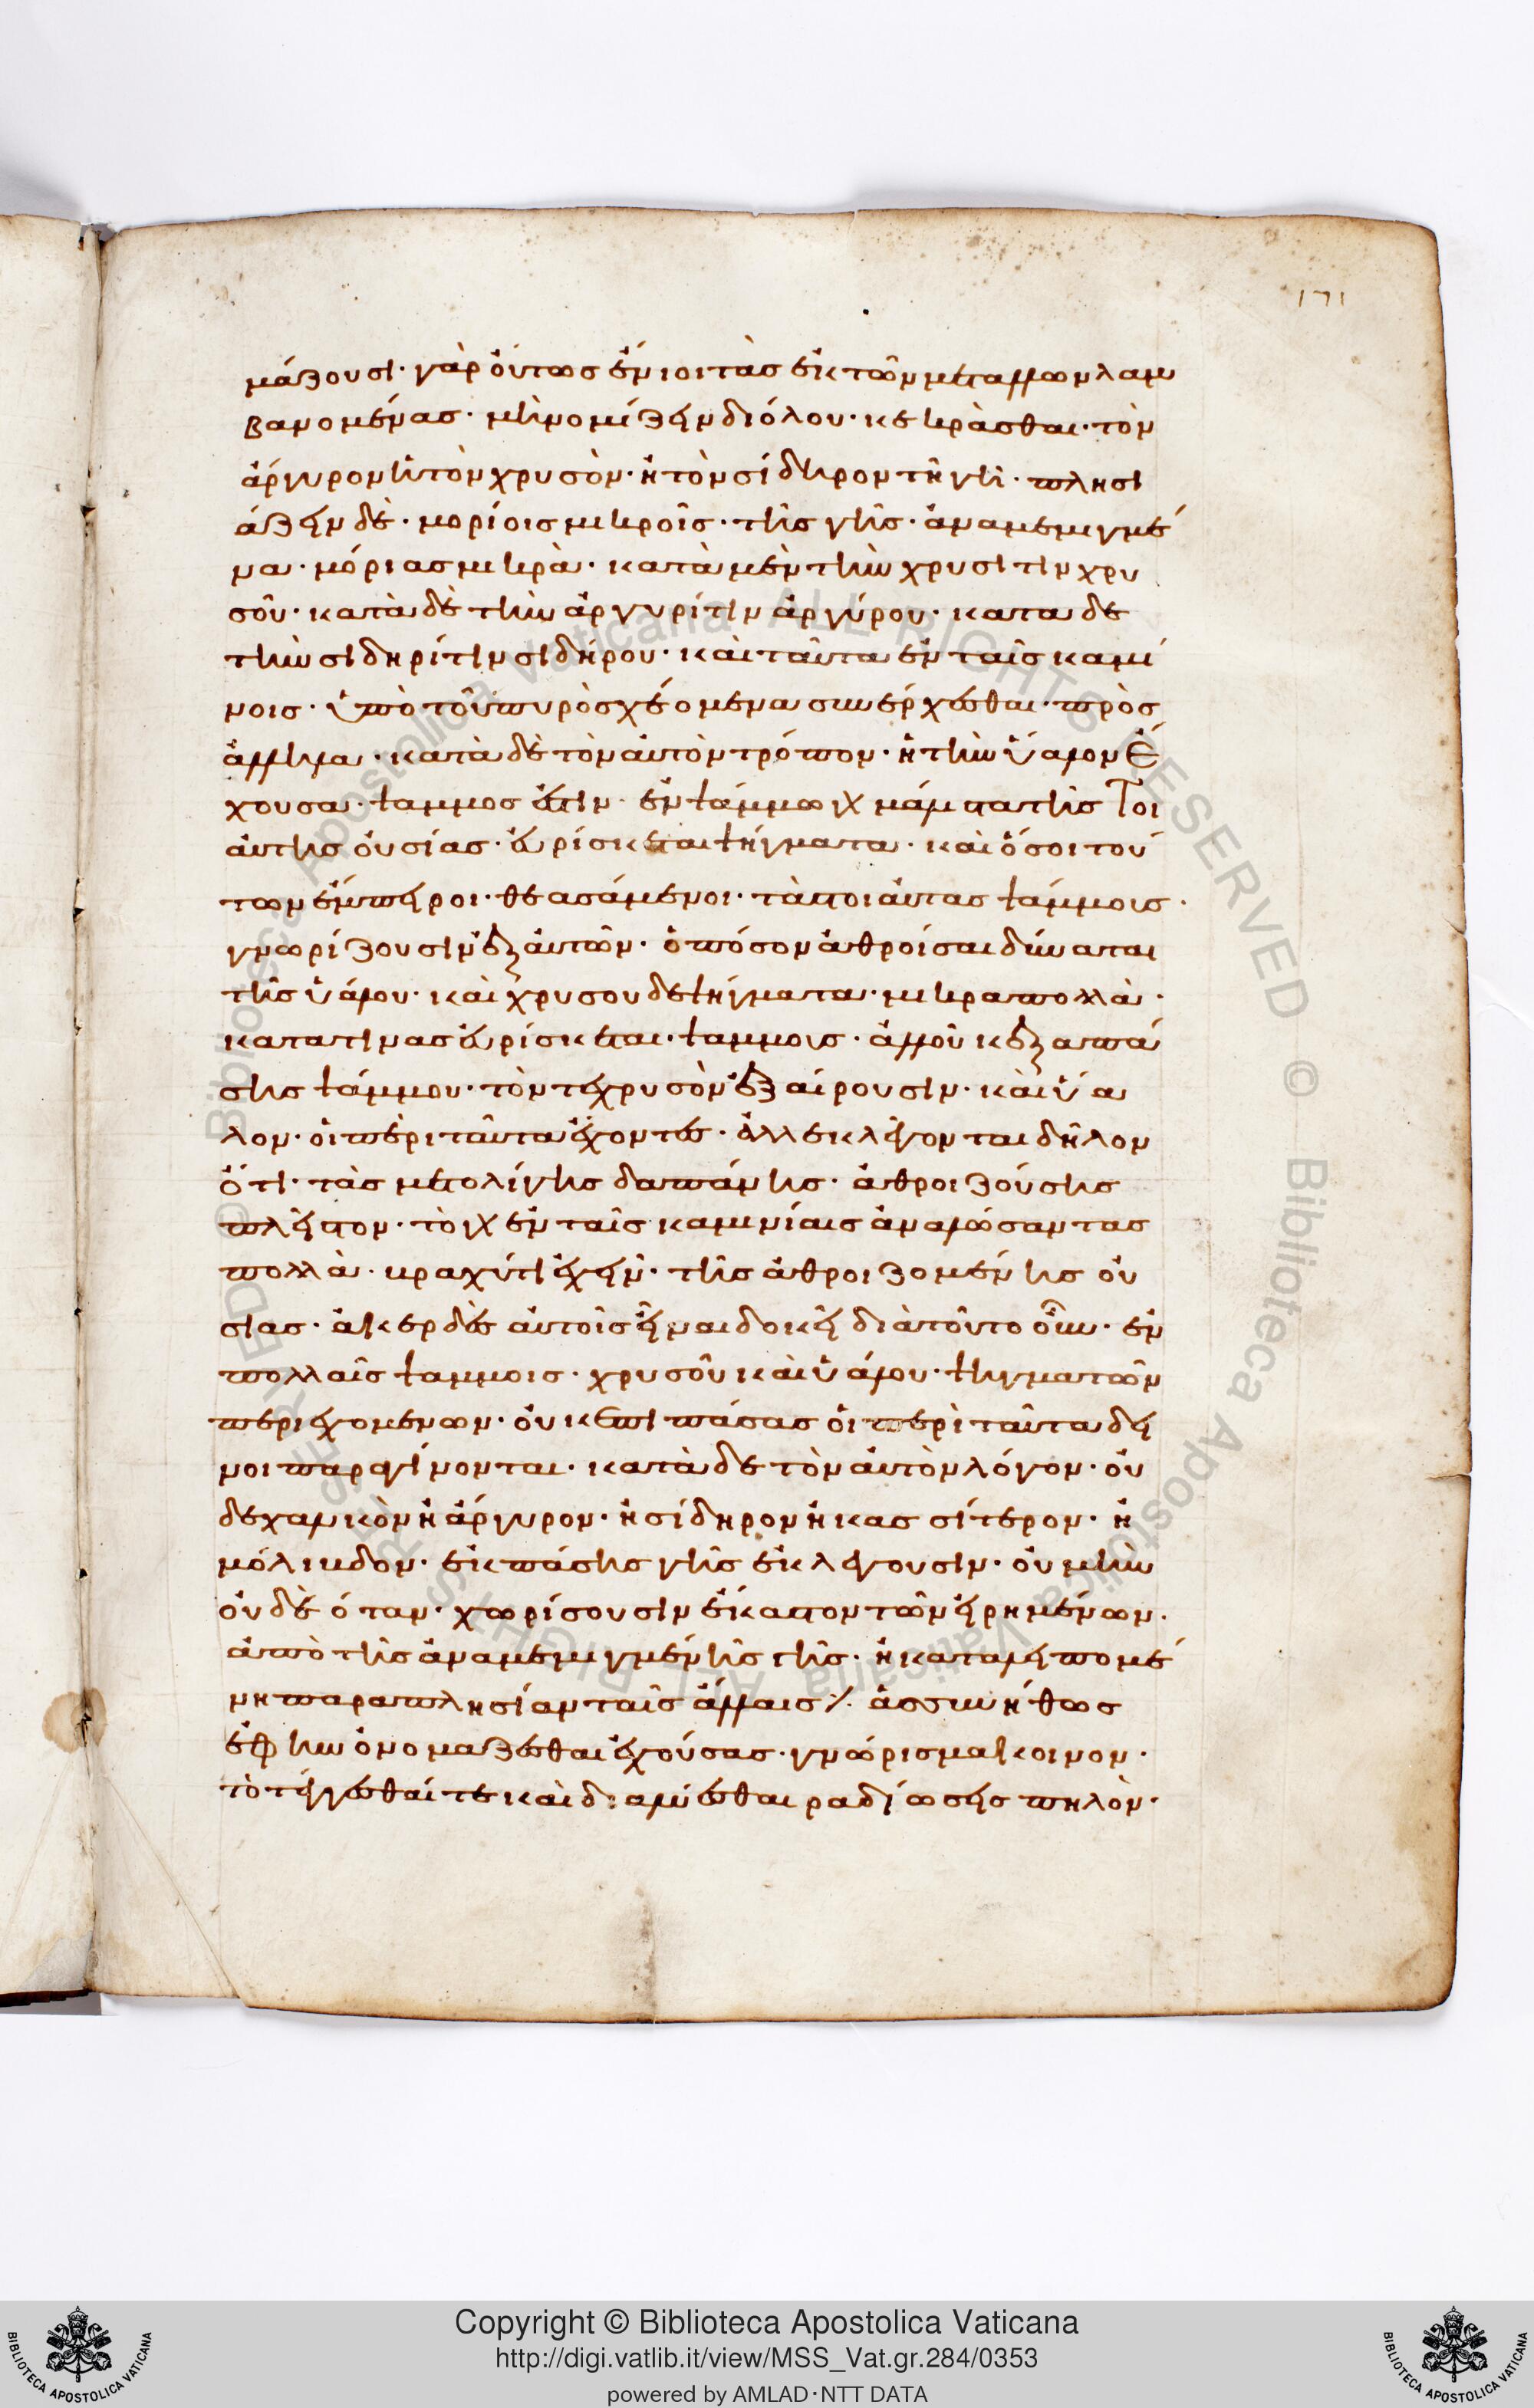 171
μάζουσι· γὰρ ὄντως ἔνιοι τὰς ἐκ τῶν μετάλλων λαμ
βανομένας· μὴ νομίζειν διόλου· κεκρᾶσθαι· τὸν
ἄργυρον ἢ τὸν χρυσὸν· ἢ τὸν σίδηρον τῆ γῆ· πλησι
άζειν δὲ· μορίοις μικροῖς· τῆς γῆς· ἀναμεμιγμέ
να· μόρια σμικρὰ· κατὰ μὲν τὴν χρυσίτιν χρυ
σοῦ· κατὰ δὲ τὴν ἀργυρίτιν ἀργύρου· κατα δε
τὴν σιδηρίτιν σιδήρου· καὶ ταῦτα ἐν ταῖς καμί
νοις· ὑπὸ τοῦ πυρὸς χεόμενα συνέρχεσθαι· πρὸς
ἄλληλα· κατὰ δὲ τὸν αὐτὸν τρόπον· ἡ τὴν ὕαλον ἔ
χουσα· ψαμμος ἐστιν· ἐν ψάμμω
αὐτῆς οὐσίας· εὑρίσκεται ψήγματα· καὶ ὅσοι τού
των ἔμπειροι· θεασάμενοι· τὰ τοιαύτας ψάμμοις·
γνωρίζουσιν ἐξ αὐτῶν· ὁπόσον ἀθροίσαι δύναται
τῆς ὑάλου· καὶ χρυσου δε ψήγματα· μικρα πολλὰ·
κατα τινας εὑρίσκεται· ψαμμοις· ἀλλοὐκ ἐξ απά
σης ψάμμου· τόν τε χρυσὸν ἐξαίρουσιν· καὶ ὕα
λον· οἱ περι ταῦτα ἔχοντες· ἀλλ εκλέγονται δῆλον
ὅτι· τὰς μετολίγης δαπάνης· ἀθροιζούσης
πλεῖστον· τὸ ἐν ταῖς καμινίαις ἀναλώσαντας
πολλὰ· βραχύ τι ἔχειν· τῆς ἀθροιζομένης οὐ
σιας· ἀκερδὲς αὐτοῖς εἶναι δοκεῖ διὰ τοῦτο οὖν· ἐν
πολλαῖς ψαμμοις· χρυσοῦ καὶ ὑάλου· ψηγματῶν
περιεχομενων· οὐκ ἐπι πάσας οἱ περὶ ταῦτα δει
νοι παραγίνονται· κατὰ δε τὸν αὐτὸν λόγον· οὐ
δε χαλκὸν ἢ ἄργυρον· ἢ σίδηρον ἢ κασσίτερον· ἢ
μόλιβδον· ἐκ πάσης γῆς ἐκλέγουσιν· οὐ μὴν
οὐδὲ ὅταν· χωρίσουσιν ἕκαστον τῶν εἰρημένων·
ἀπὸ τῆς ἀναμεμιγμένῆς γῆς· ἡ καταλειπομέ
νη παραπλησίαν ταῖς ἄλλαις ἀσσυνήθως
ἐφ ην ὀνομαζεσθαι ἐχούσας· γνώρισμα κοινον·
τὸ τέγγεσθαί τε καὶ διαλύεσθαι ραδίως εἰς πηλὸν·
Copyright © Biblioteca Apostolica Vaticana
http://digi.vatlib.it/view/MSS_Vat.gr.284/0353
powered by AMLAD·NTT DATA